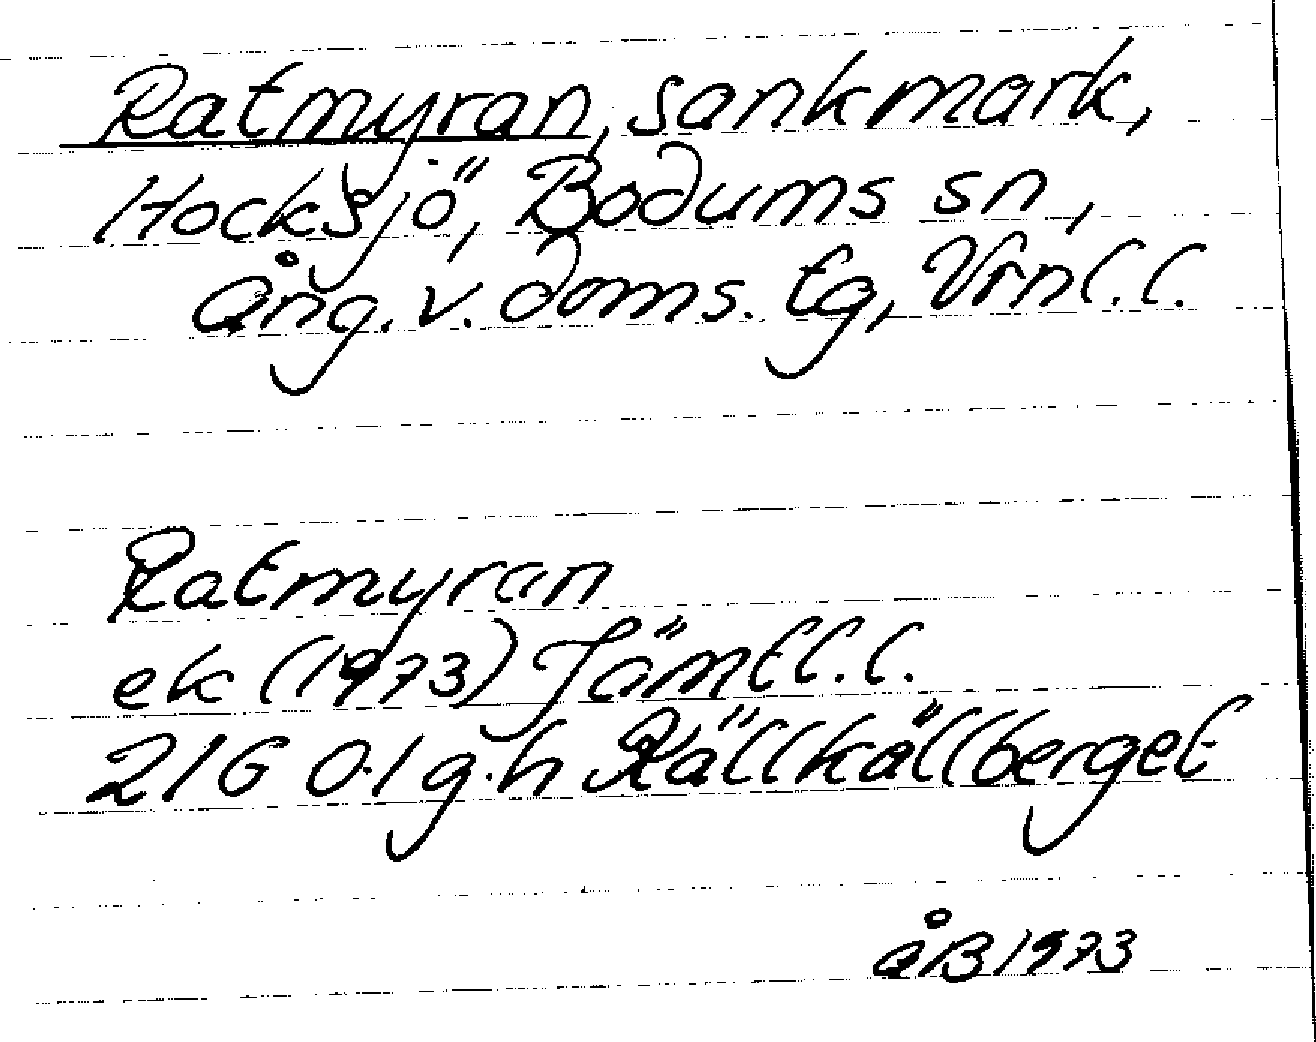 Ratmyran, sankmark,
Hocksjö, Bodums sn,
Ång. v. doms. tg, Vrnl. l.
Ratmyran
ek (1973) Jämtl. l.
21G 0-1 g-h Källkällberget
ÅB 1973